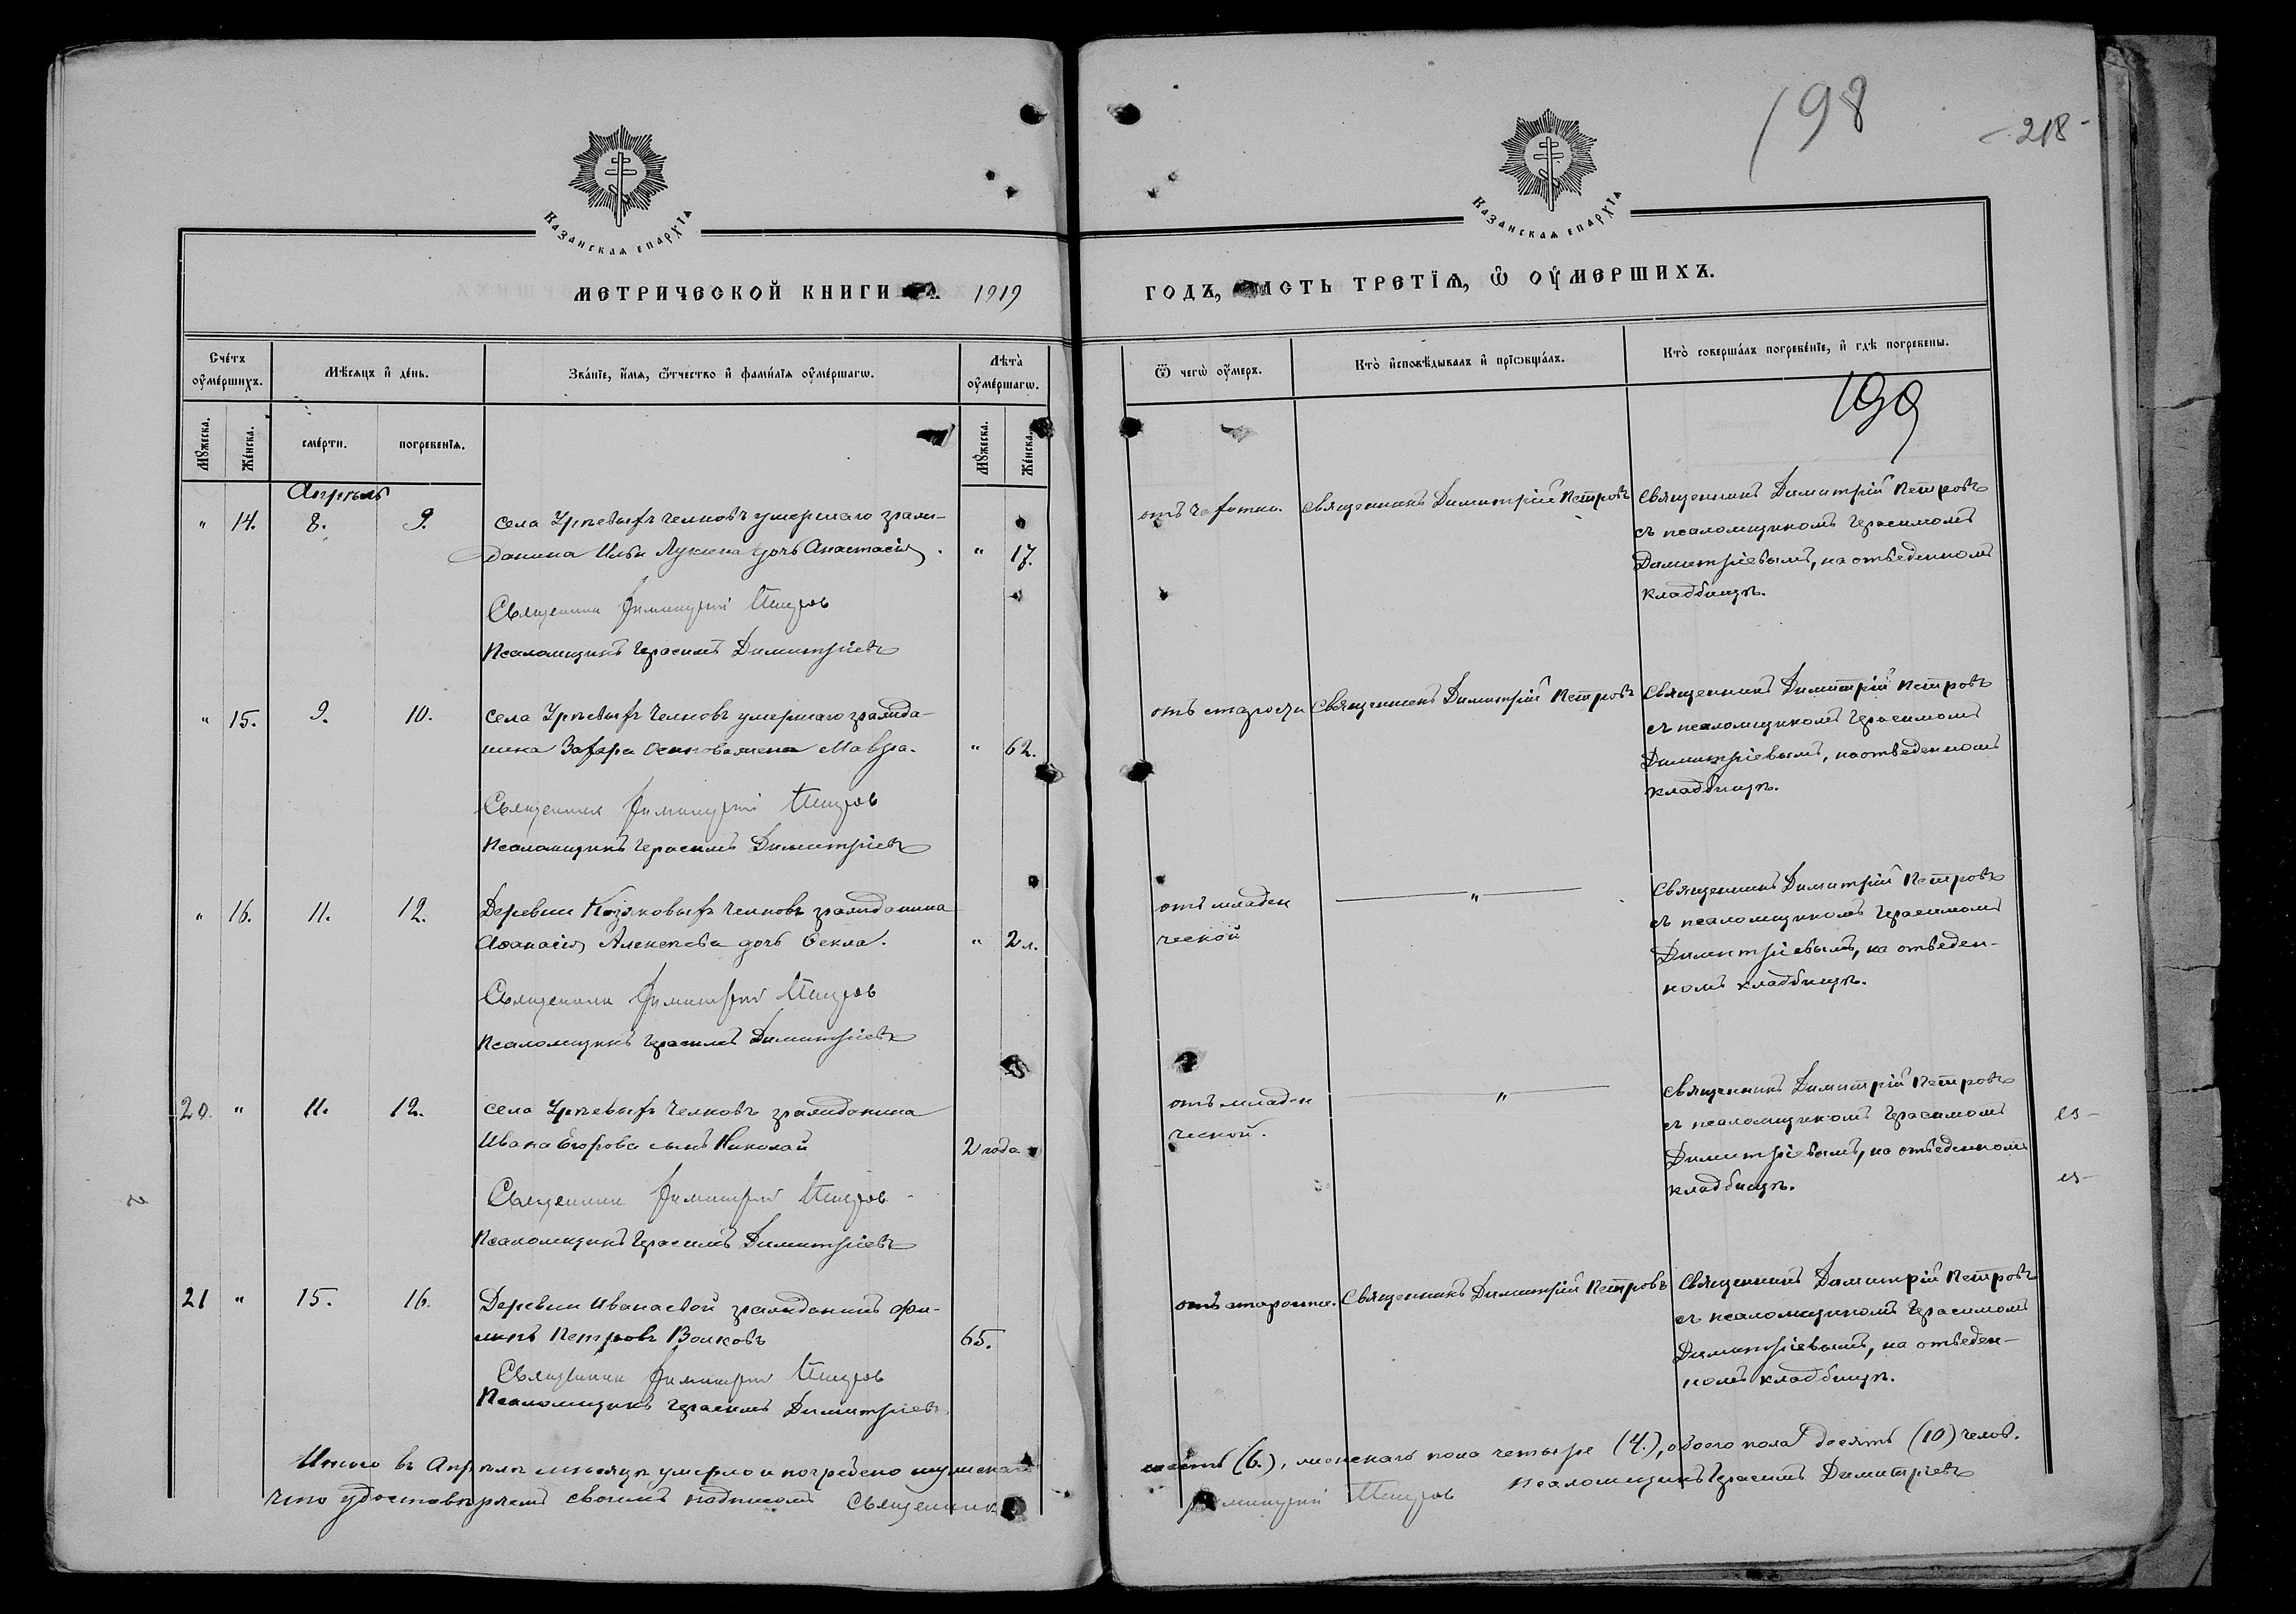 198
- 218 -
КАЗАНСКАѦ ЕПАРХІѦ
КАЗАНСКАѦ ЕПАРХІѦ
МЕТРИЧЕСКОЙ КНИГИ 1919
ГОДЪ, ЧАСТЬ ТРЕТІѦ, Ѽ ОУМЕРШИХЪ.
Счетъ оумершихъ.
Мѣсяцъ и день.
Званіе, имѧ, ѿчество и фамиліѧ оумершагѡ.
Лѣта оумершагѡ.
Ѿ чегѡ оумеръ.
Кто исповѣдывалъ и пріѡбщалъ.
Кто совершалъ погребеніе, и гдѣ погребены.
Мꙋжеска.
Женска.
смерти.
погребеніѧ.
Мꙋжеска.
Женска.
199
Апрѣль
" 14. 8. 9. села челновъ умершаго граж-
данина Ильи Лукина дочь Анастасія. " 17.
Священникъ Димитрій Петровъ
Псаломщикъ Герасимъ Димитріевъ
отъ чахотки. Священникъ Димитрій Петровъ
Священникъ Димитрій Петровъ
съ псаломщикомъ Герасимомъ
Димитріевымъ, на отведенномъ
кладбищѣ.
" 15. 9. 10. села Челновъ умершаго гражда-
нина Захара жена Мавра. " 62.
Священникъ Димитрій Петровъ
Псаломщикъ Герасимъ Димитріевъ
отъ старости Священникъ Димитрій Петровъ
Священникъ Димитрій Петровъ
съ псаломщикомъ Герасимомъ
Димитріевымъ, на отведенномъ
кладбищѣ.
" 16. 11. 12. Деревни Козяковыхъ Челновъ гражданина
Аѳанасія Алексѣева дочь Ѳекла. " 2 л.
Священникъ Димитрій Петровъ
Псаломщикъ Герасимъ Димитріевъ
отъ младен
ческой
"
Священникъ Димитрій Петровъ
съ псаломщикомъ Герасимомъ
Димитріевымъ, на отведен-
номъ кладбищѣ.
20. " 11. 12. села Челновъ гражданина
Ивана Егорова сынъ Николай 2 года
Священникъ Димитрій Петровъ
Псаломщикъ Герасимъ Димитріевъ
отъ младен
ческой.
"
Священникъ Димитрій Петровъ
съ псаломщикомъ Герасимомъ
Димитріевымъ, на отведенномъ
кладбищѣ.
21 " 15. 16. Деревни Иванаевой гражданинъ Фи-
липъ Петровъ Волковъ 65.
Священникъ Димитрій Петровъ
Псаломщикъ Герасимъ Димитріевъ
отъ старости. Священникъ Димитрій Петровъ
Священникъ Димитрій Петровъ
съ псаломщикомъ Герасимомъ
Димитріевымъ, на отведен-
номъ кладбищѣ.
Итого въ Апрѣлѣ мѣсяцѣ умерло и погребено мужскаго шесть (6.), женскаго пола четыре (4.), обоего пола десять (10) челов.
Что удостовѣряемъ своимъ подписомъ Священникъ Димитрій Петровъ Псаломщикъ Герасимъ Димитріевъ